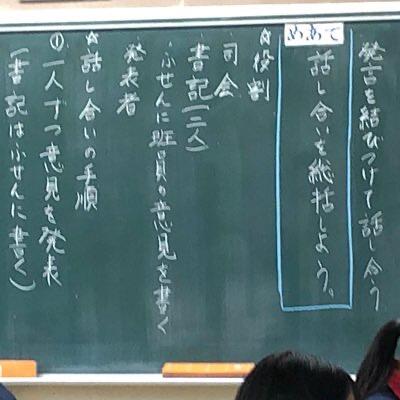 発言を結びつけて話し合う
めあて
話し合いを総括しよう。
☆役割
司会
書記(二人)
ふせんに班員の意見を書く
発表者
☆話し合いの手順
①一人ずつ意見を発表
(書記はふせんに書く)